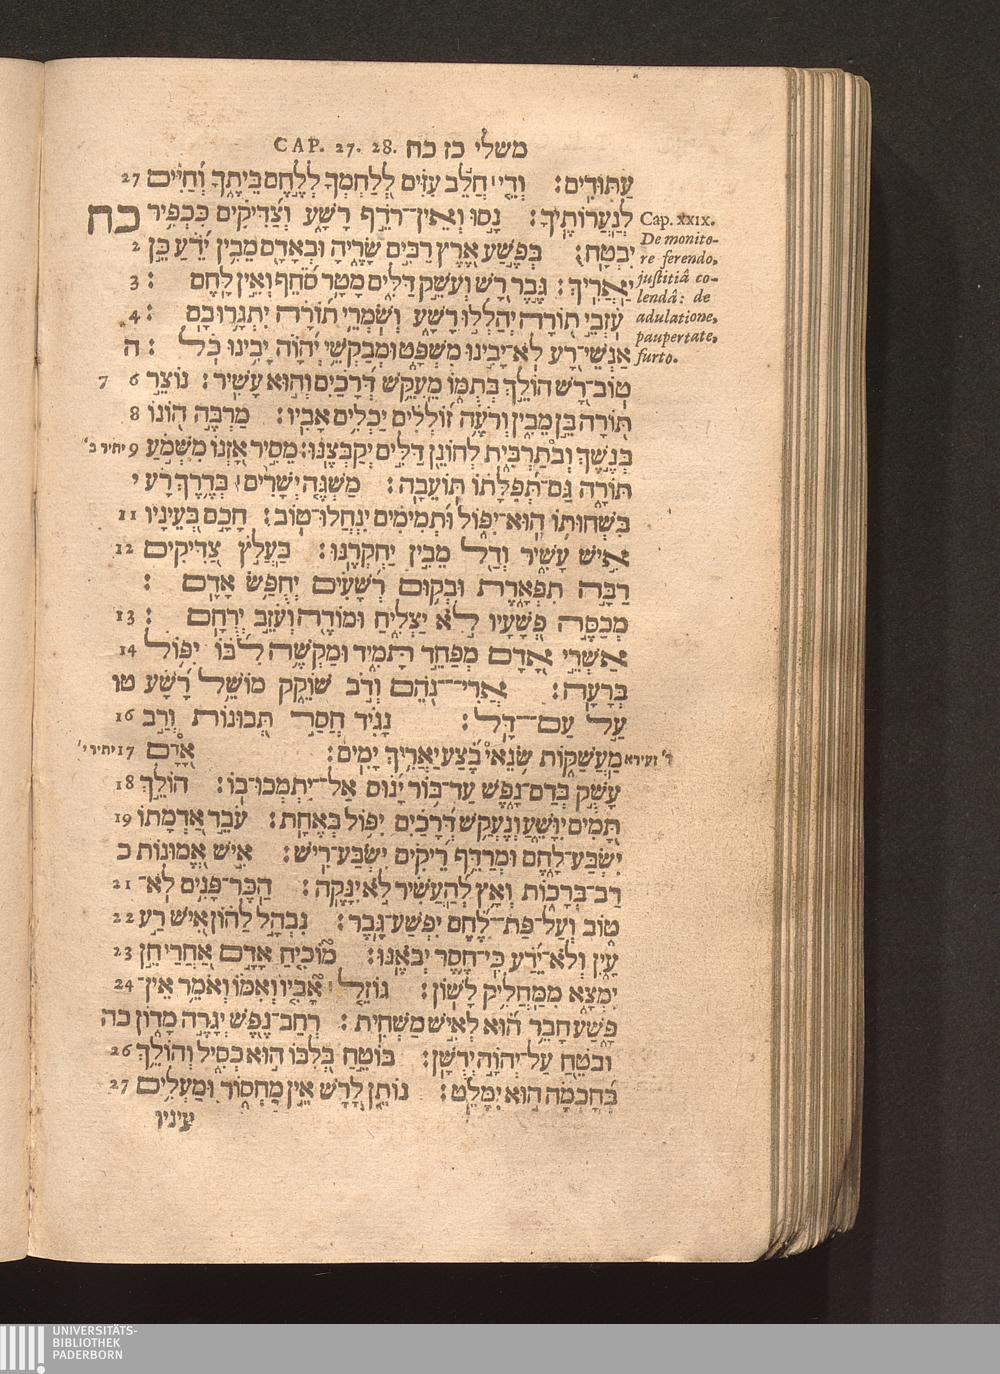 CAP. 27. 28. משלי כז כח
עַתּוּדִים׃ וְדֵי ׀ חֲלֵב עִזִּים לְלַחְמְךָ לְלֶחֶם בֵּיתֶךָ וְחַיִּים 27
לְנַעֲרוֹתֶיךָ׃ נָסוּ וְאֵין־רֹדֵף רָשָׁע וְצַדִּיקִים כִּכְפִיר כח
יִבְטָח׃ בְּפֶשַׁע אֶרֶץ רַבִּים שָׂרֶיהָ וּבְאָדָם מֵבִין יֹדֵעַ כֵּן 2
יַאֲרִיךְ׃ גֶּבֶר רָשׁ וְעֹשֵׁק דַּלִּים מָטָר סֹחֵף וְאֵין לָחֶם ׃ 3
עֹזְבֵי תוֹרָה יְהַלְלוּ רָשָׁע וְשֹׁמְרֵי תוֹרָה יִתְגָּרוּ בָם ׃ 4
אַנְשֵׁי־רָע לֹא־יָבִינוּ מִשְׁפָּט וּמְבַקְשֵׁי יְהוָֹה יָבִינוּ כֹל ׃ ה
טוֹב־רָשׁ הוֹלֵךְ בְּתֻמּוֹ מֵעִקֵּשׁ דְּרָכַיִם וְהוּא עָשִׁיר׃ נוֹצֵר 6 7
תּוֹרָה בֵּן מֵבִין וְרֹעֶה זוֹלְלִים יַכְלִים אָבִיו׃ מַרְבֶּה הוֹנוֹ 8
בְּנֶשֶׁךְ וּבְתַרְבִּית לְחוֹנֵן דַּלִּים יִקְבְּצֶנּוּ׃ מֵסִיר אָזְנוֹ מִשְּׁמֹעַ 9 יתיר ב׳
תּוֹרָה גַּם־תְּפִלָּתוֹ תּוֹעֵבָה׃ מַשְׁגֶּה יְשָׁרִים׀ בְּדֶרֶךְ רָע י
בִּשְׁחוּתוֹ הוּא־יִפּוֹל וּתְמִימִים יִנְחֲלוּ־טוֹב׃ חָכָם בְּעֵינָיו 11
אִישׁ עָשִׁיר וְדַל מֵבִין יַחְקְרֶנּוּ׃ בַּעֲלֹץ צַדִּיקִים 12
רַבָּה תִפְאָרֶת וּבְקוּם רְשָׁעִים יְחֻפַּשׂ אָדָם ׃
מְכַסֶּה פְשָׁעָיו לֹא יַצְלִיחַ וּמוֹדֶה וְעֹזֵב יְרֻחָם ׃ 13
אַשְׁרֵי אָדָם מְפַחֵד תָּמִיד וּמַקְשֶׁה לִבּוֹ יִפּוֹל 14
בְּרָעָה׃ אֲרִי־נֹהֵם וְדֹב שׁוֹקֵק מוֹשֵׁל רָשָׁע טו
עַל עַם־דָּל׃ נָגִיד חֲסַר תְּבוּנוֹת וְרַב 16
מַעֲשַׁקּוֹת שֹׂנְאֵי בֶצַע יַאֲרִיךְ יָמִים׃ אָדָם 17 יתיר י׳
עָשֻׁק בְּדַם־נָפֶשׁ עַד־בּוֹר יָנוּס אַל־יִתְמְכוּ־בוֹ׃ הוֹלֵךְ 18
תָּמִים יִוָּשֵׁעַ וְנֶעְקַשׁ דְּרָכַיִם יִפּוֹל בְּאֶחָת׃ עֹבֵד אַדְמָתוֹ 19
יִשְׂבַּע־לָחֶם וּמְרַדֵּף רֵיקִים יִשְׂבַּע־רִישׁ׃ אִישׁ אֱמוּנוֹת כ
רַב־בְּרָכוֹת וְאָץ לְהַעֲשִׁיר לֹא יִנָּקֶה׃ הַכֵּר־פָּנִים לֹא־ 21
טוֹב וְעַל־פַּת־לֶחֶם יִפְשַׁע־גָּבֶר׃ נִבְהָל לַהוֹן אִישׁ רַע 22
עָיִן וְלֹא־יֵדַע כִּי־חֶסֶר יְבֹאֶנּוּ׃ מוֹכִיחַ אָדָם אַחֲרַי חֵן 23
יִמְצָא מִמַּחֲלִיק לָשׁוֹן׃ גּוֹזֵל ׀ אָבִיו וְאִמּוֹ וְאֹמֵר אֵין־ 24
פָּשַׁע חָבֵר הוּא לְאִישׁ מַשְׁחִית׃ רְחַב־נֶפֶשׁ יְגָרֶה מָדוֹן כה
וּבֹטֵחַ עַל־יְהוָֹה יְדֻשָּׁן׃ בּוֹטֵחַ בְּלִבּוֹ הוּא כְסִיל וְהוֹלֵךְ 26
בְּחָכְמָה הוּא יִמָּלֵט׃ נוֹתֵן לָרָשׁ אֵין מַחְסוֹר וּמַעְלִים 27
עיניו
Cap. xxix.
De monito-
re ferendo,
justitiâ co-
lendâ: de
adulatione,
paupertate,
furto.
זעירא
UNIVERSITÄTS-
BIBLIOTHEK
PADERBORN